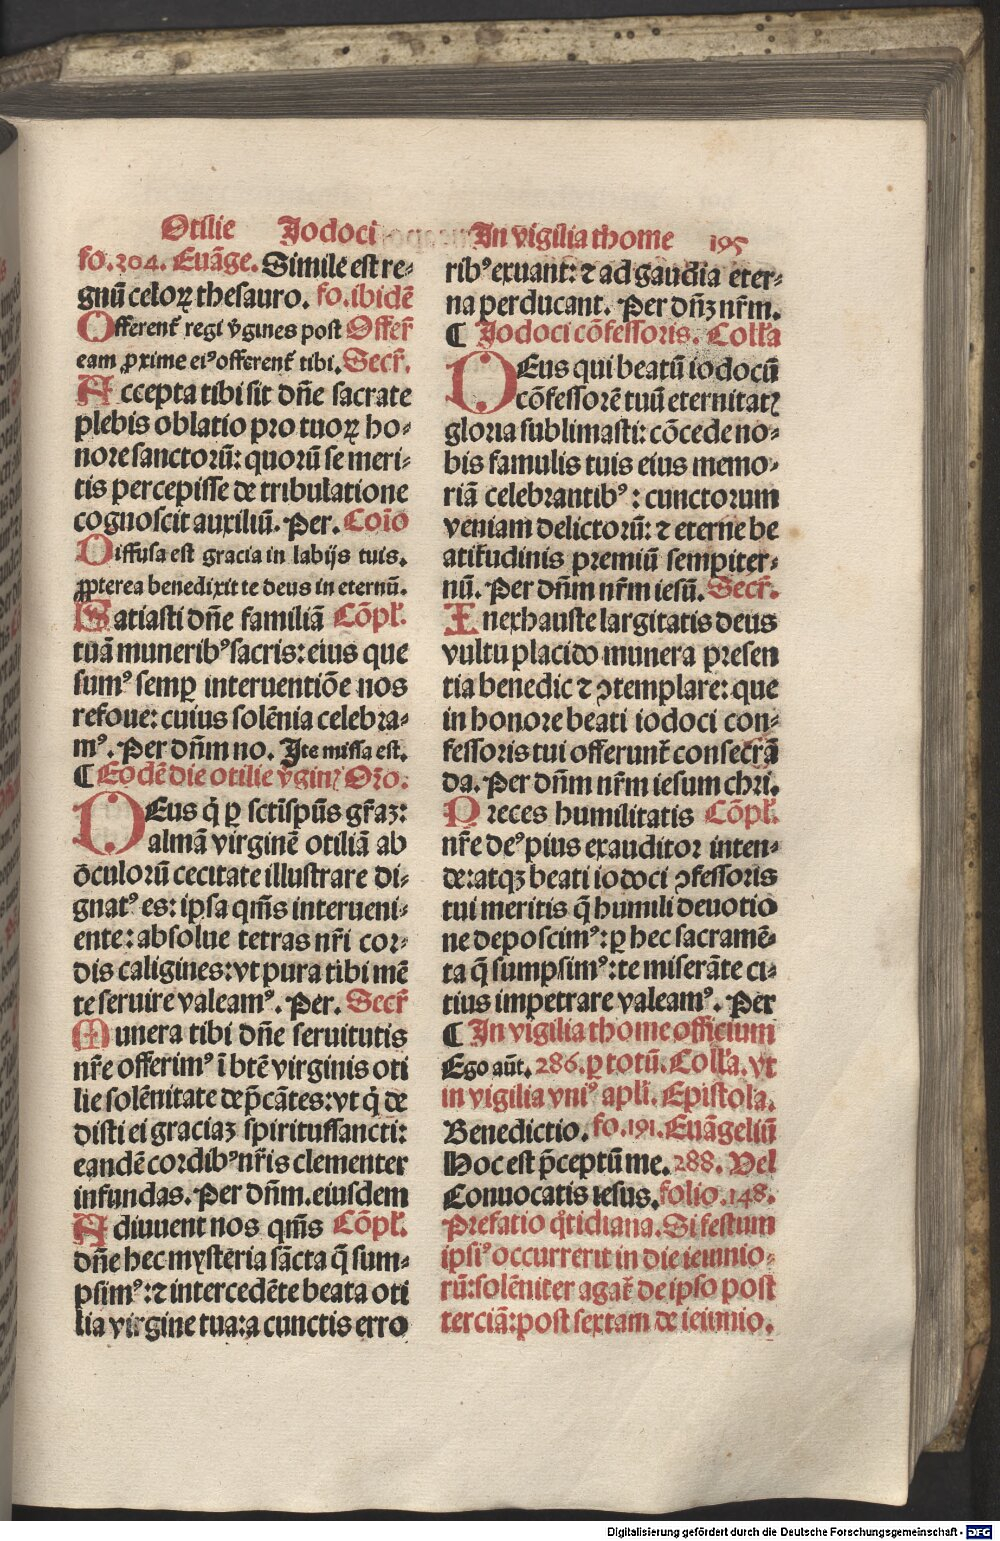 Otilie Jodoci In vigilia thome 195
fo.204. Euãge. Simile est re⸗
gnũ celoꝝ thesauro. fo.ibidẽ
Offerent̃ regi v̾gines post Offer̃
eam ꝓxime eiꝰ offerent̃ tibi. Secr̃.
Accepta tibi sit dñe sacrate
plebis oblatio pro tuoꝝ ho⸗
nore sanctorũ: quorũ se meri⸗
tis percepisse de tribulatione
cognoscit auxiliũ. Per. Cõio
Diffusa est gracia in labijs tuis.
ꝓpterea benedixit te deus in eternũ.
Satiasti dñe familiã Cõpl̃.
tuã muneribꝰ sacris: eius que
sumꝰ semꝑ interuentiõe nos
refoue: cuius solẽnia celebra⸗
mꝰ. Per dñm no. Ite missa est.
¶ Eodẽ die otilie v̾giñ Oro.
DEus q̇ ꝑ sctĩspũs gr̃aꝫ:
almã virginẽ otiliã ab
õculorũ cecitate illustrare di⸗
gnatꝰ es: ipsa qm̃s interueni⸗
ente: absolue tetras nr̃i cor⸗
dis caligines: vt pura tibi mẽ
te seruire valeamꝰ. Per. Secr̃
Munera tibi dñe seruitutis
nr̃e offerimꝰ ĩ btẽ virginis oti
lie solẽnitate dep̃cãtes: vt q̇ de
disti ei graciaꝫ spiritussancti:
eandẽ cordibꝰ nr̃is clementer
infundas. Per dñm. eiusdem
Adiuuent nos qm̃s Cõpl̃.
dñe hec mysteria sãcta q̃ sum⸗
psimꝰ: ⁊ intercedẽte beata oti
lia virgine tua: a cunctis erro
ribꝰ exuant: ⁊ ad gaudia eter⸗
na perducant. Per dñꝫ nr̃m.
¶ Jodoci cõfessoris. Coll̃a
DEus qui beatũ iodocũ
cõfessorẽ tuũ eternitatꝭ
gloria sublimasti: cõcede no⸗
bis famulis tuis eius memo⸗
riã celebrantibꝰ: cunctorum
veniam delictorũ: ⁊ eterne be
atitudinis premiũ sempiter⸗
nũ. Per dñm nr̃m iesũ. Secr̃.
Inexhauste largitatis deus
vultu placido munera presen
tia benedic ⁊ ꝯtemplare: que
in honore beati iodoci con⸗
fessoris tui offerunt̃ consecrã
da. Per dñm nr̃m iesum chri.
Preces humilitatis Cõpl̃.
nr̃e deꝰ pius exauditor inten⸗
de: atqꝫ beati iodoci ꝯfessoris
tui meritis q̃ humili deuotio
ne deposcimꝰ: ꝑ hec sacramẽ⸗
ta q̃ sumpsimꝰ: te miserãte ci⸗
tius impetrare valeamꝰ. Per
¶ In vigilia thome officium
Ego aũt. 286. ꝑ totũ. Coll̃a. vt
in vigilia vniꝰ apli. Epistola.
Benedictio. fo.191. Euãgeliũ
Hoc est p̃ceptũ me. 288. Vel
Conuocatis iesus. folio.148.
Prefatio q̇tidiana. Si festum
ipsiꝰ occurrerit in die ieiunio⸗
rũ: solẽniter agat̃ de ipso post
terciã: post sextam de ieiunio.
Digitalisierung gefördert durch die Deutsche Forschungsgemeinschaft - DFG